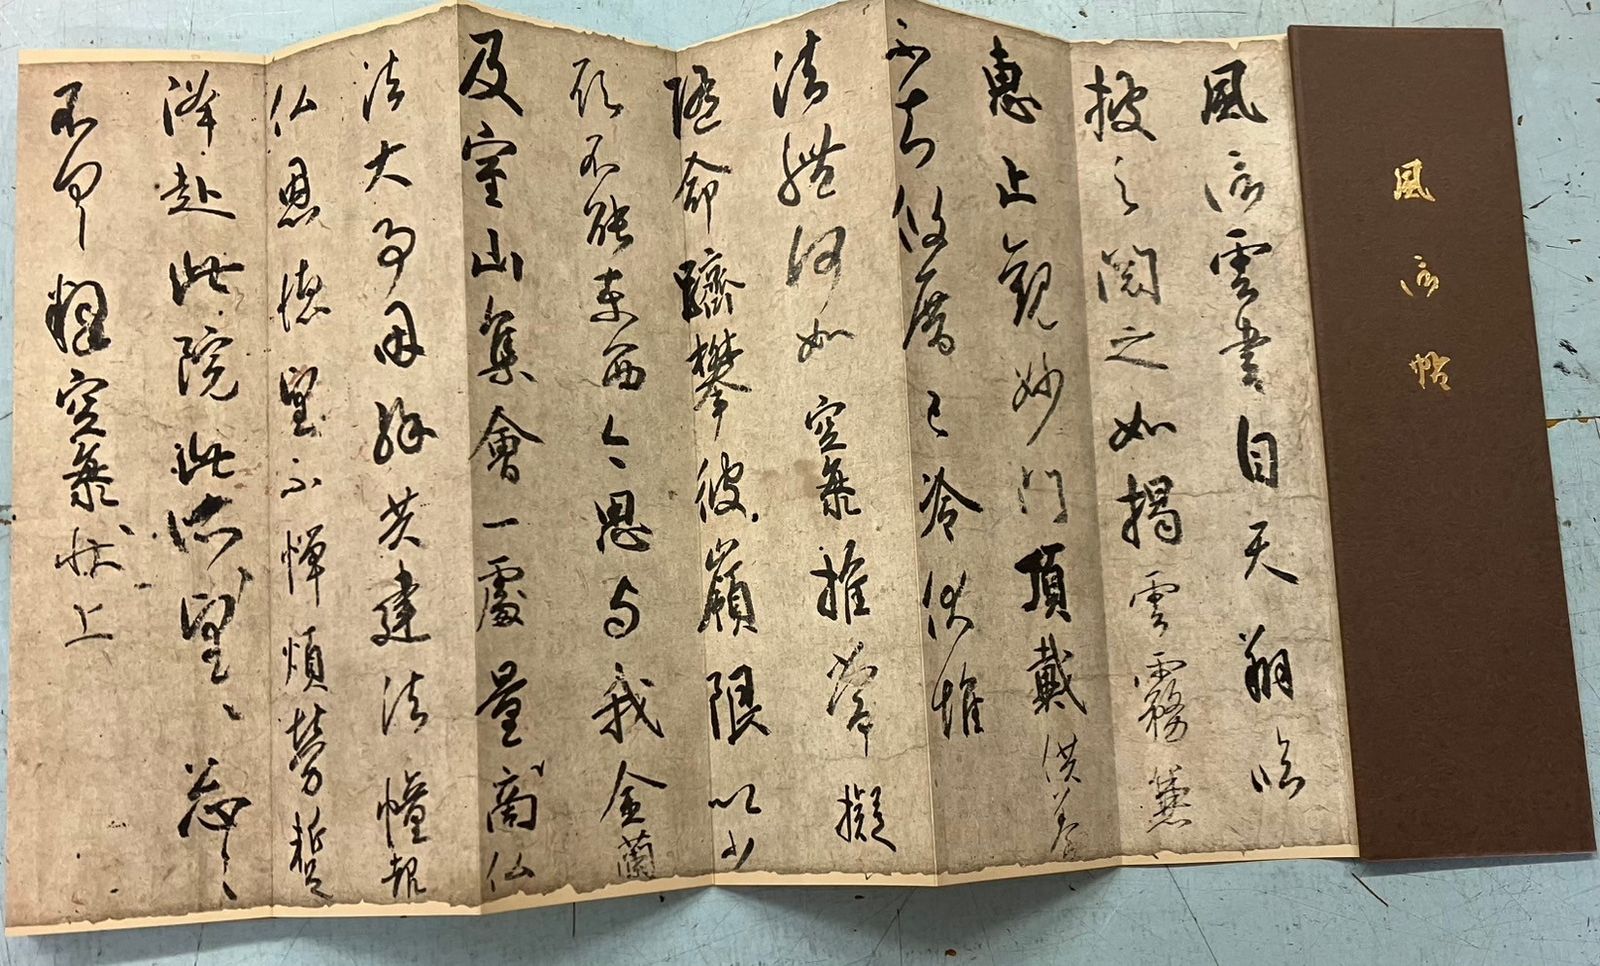 風信帖
風信雲書自天翔臨
披之閲之如掲雲霧兼
恵止観妙門頂戴供養
不知攸厝已冷伏惟
法體何如空海推常擬
随命躋攀彼嶺限以少
願不能東西今思与我金蘭
及室山集會一處量商仏
法大事因縁共建法幢報
仏恩徳望不憚煩勞蹔
降赴此院此所望々々忩々
不具釋空海状上